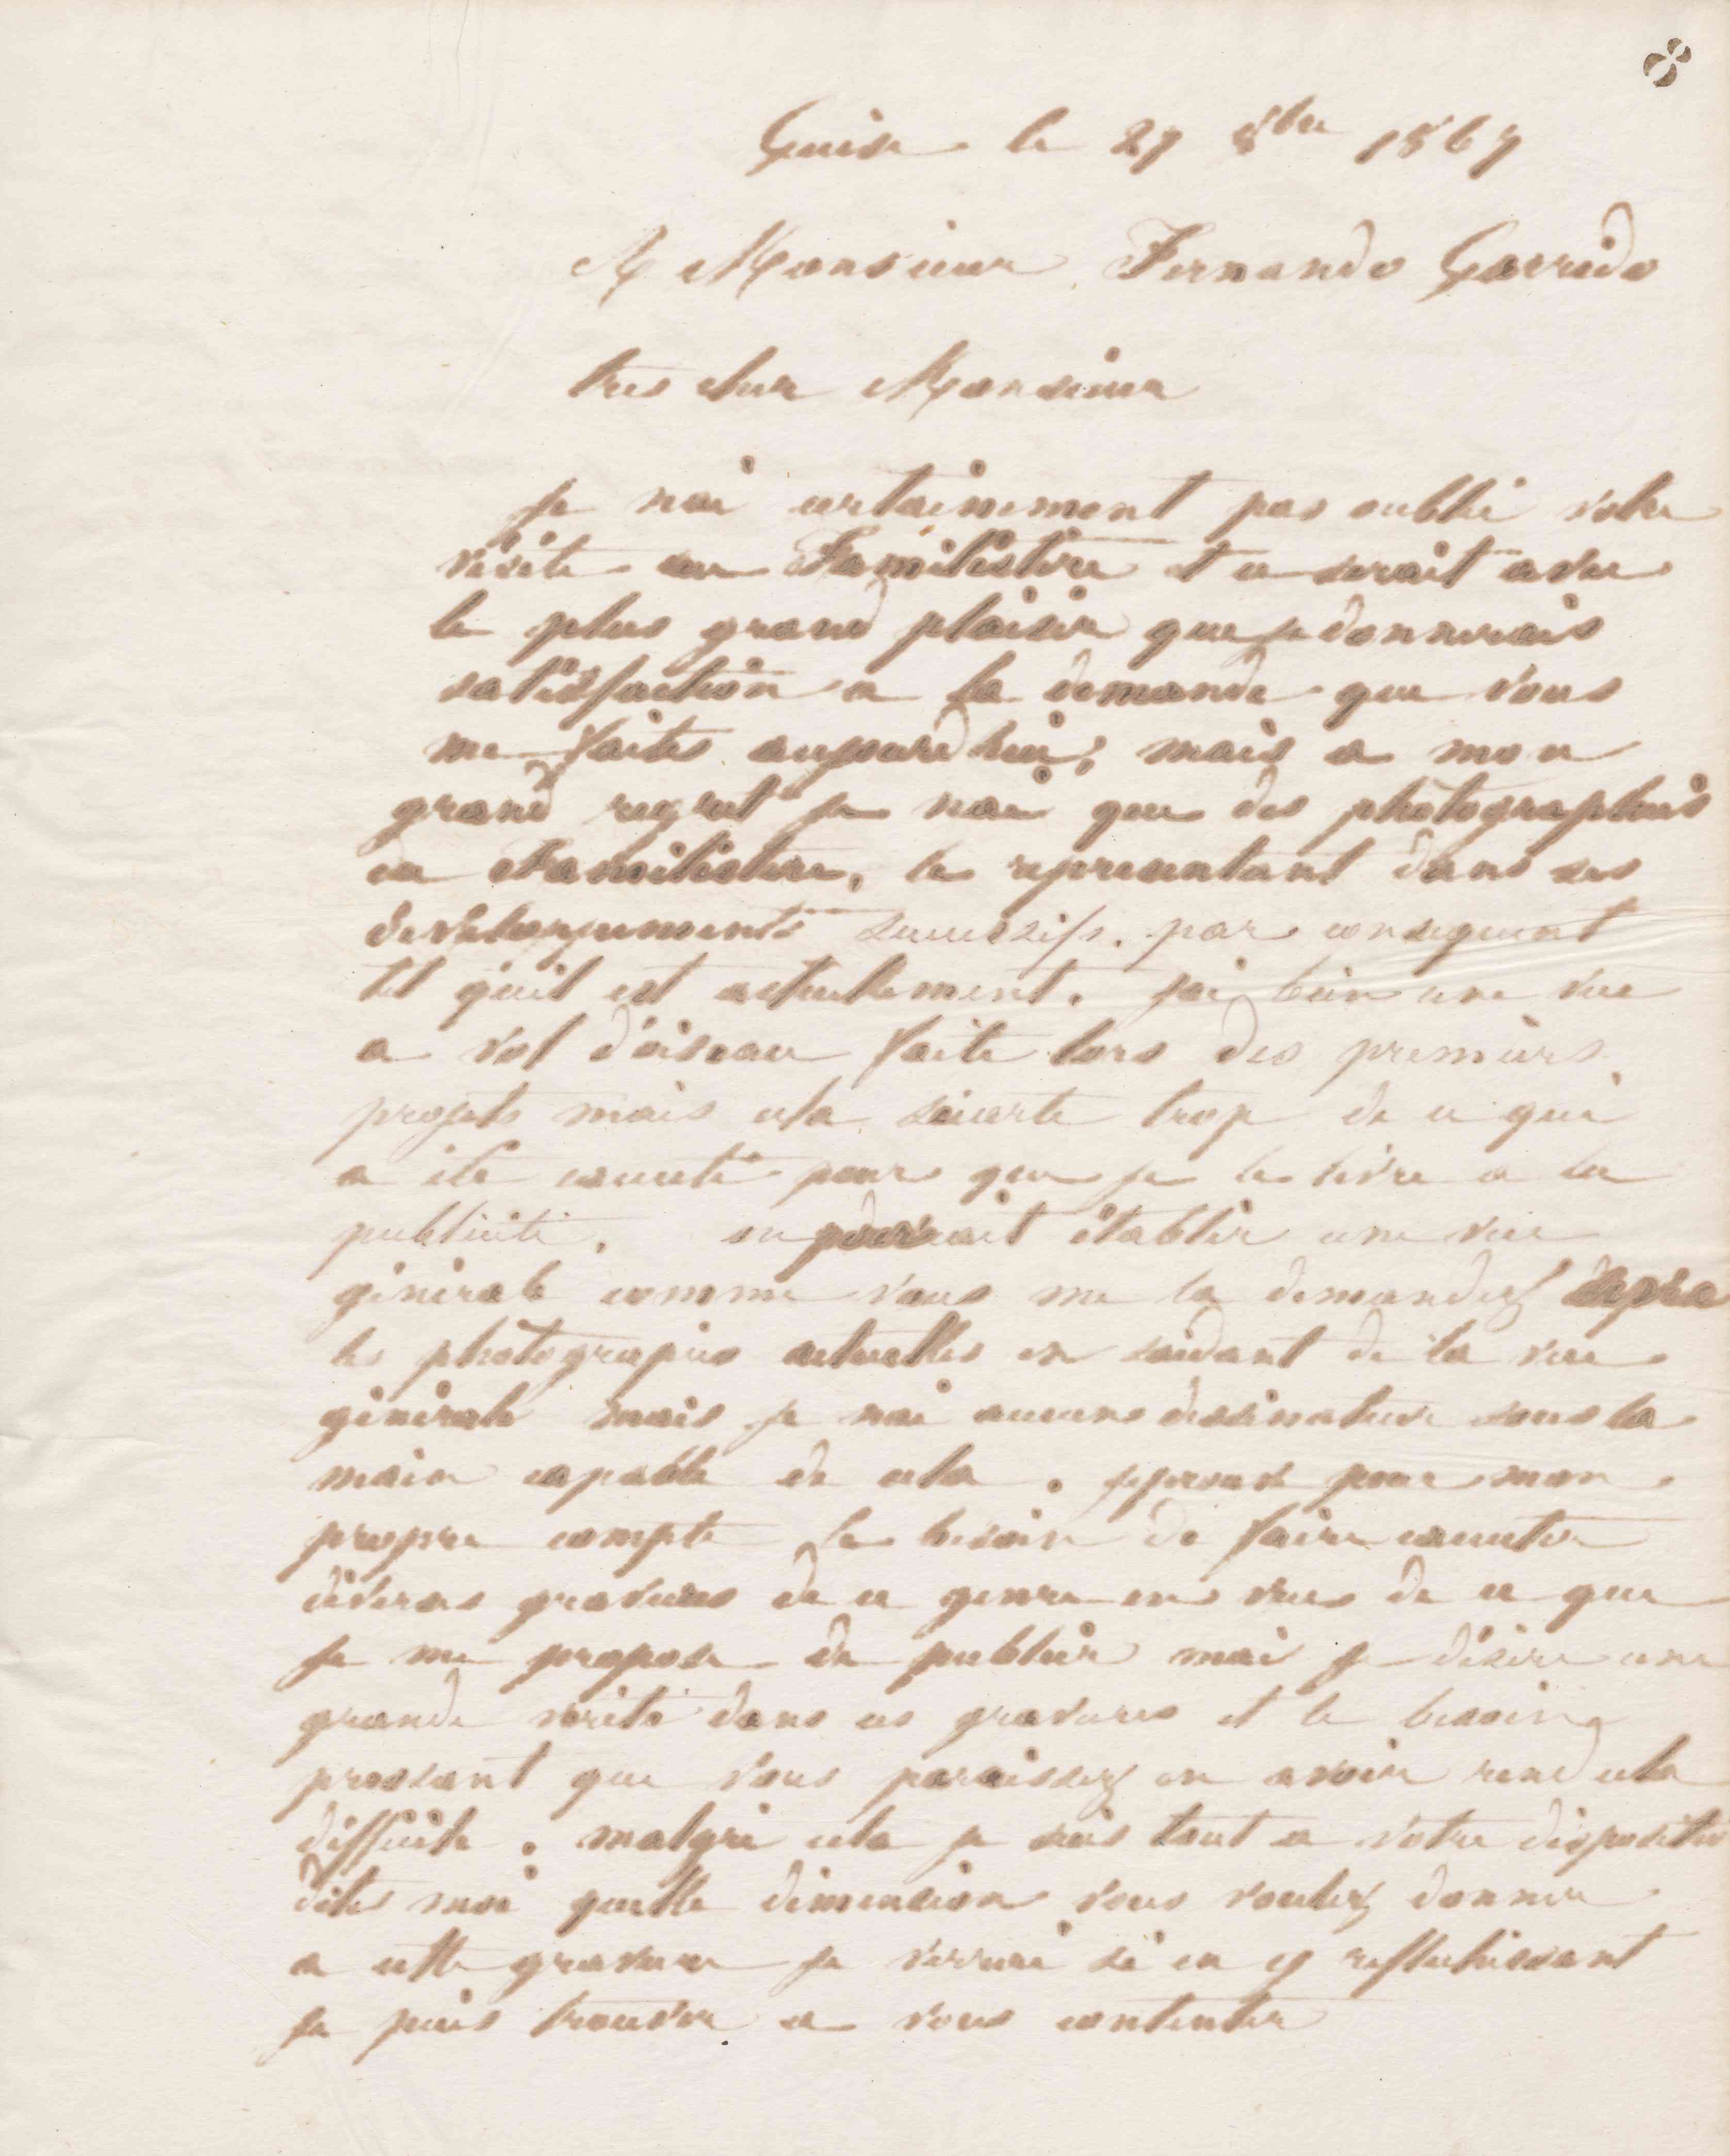 8
Guise le 27 8bre 1867
A Monsieur Fernando Garrido
tres cher Monsieur
Je nai certainement pas oublié votre
visite au Familistère et ce serait avec
le plus grand plaisir que je donnerais
satisfaction a la demande que vous
me faites aujourdhui; mais a mon
grand regret je nai que des photographies
du Familistère, le representant dans ses
developpements successifs. par consequent
tel quil est actuellement. jai bien une vue
a vol d'oiseau faite lors des premiers
projets mais cela sécarte trop de ce qui
a été executé pour que je le livre a la
publicité. on pourrait établir une vue
générale comme vous me la demandez dapres
les photograpies actuelles en saidant de la vue
générale mais je nai aucuns dessinateur sous la
main capable de cela. jeprouve pour mon
propre compte le besoin de faire executer
diverses gravures de ce genre en vue de ce que
je me propose de publier mais je désire une
grande vérité dans ces gravures et le besoin
pressant que vous paraissez en avoir rend cela
difficile. malgré cela je suis tout a votre dispositio
dites moi quelle dimension vous voulez donner
a cette gravure je verrai si en y reflechissant
je puis trouver a vous contenter